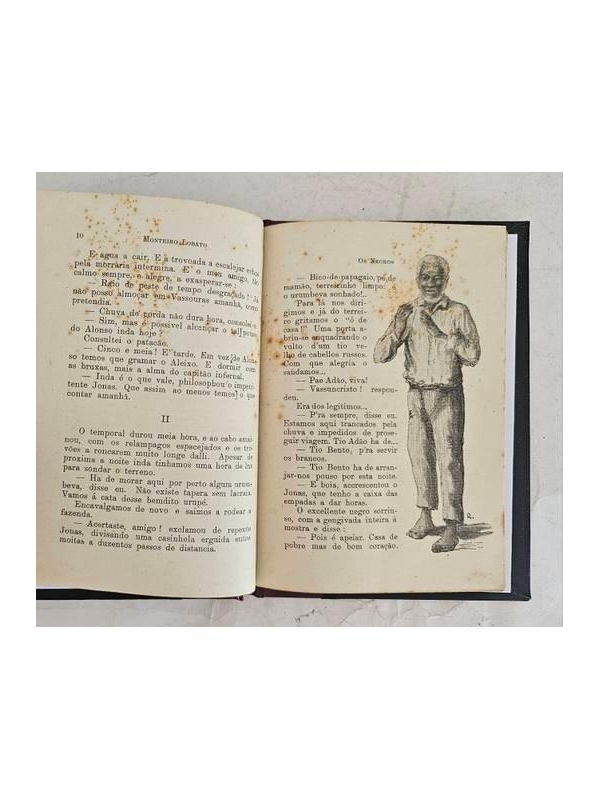 10
MONTEIRO LOBATO
E agua a cair. E a trovoada a escalejar
pela morraria intermina. E o meu amigo, tão
calmo sempre, e alegre, a exasperar-se :
— Raio de peste de tempo desgraçado ! Já
não posso almoçar em Vassouras amanhã, como
pretendia.
— Chuva de corda não dura hora,
— Sim, mas é possivel alcançar o tal pouso
do Alonso inda hoje ?
Consultei o patacão.
— Cinco e meia ! E' tarde. Em vez de Alonso
so temos que gramar o Aleixo. E dormir com
as bruxas, mais a alma do capitão infernal.
— Inda é o que vale, philosophou o impeni-
tente Jonas. Que assim ao menos temos o que
contar amanhã.
II
O temporal durou meia hora, e ao cabo amai-
nou, com os relampagos espacejados e os tro-
vões a roncarem muito longe dalli. Apesar de
proxima a noite inda tinhamos uma hora de luz
para sondar o terreno.
— Ha de morar aqui por perto algum urum-
beva, disse eu. Não existe tapera sem lacraia.
Vamos á cata desse bemdito urupé.
Encavalgamos de novo e saimos a rodear a
fazenda.
— Acertaste, amigo ! exclamou de repente
Jonas, divisando uma casinhola erguida entre
moitas a duzentos passos de distancia.
OS NEGROS
— Bico-de-papagaio, pé de
mamão, terreirinho limpo:
o urumbeva sonhado!..
Para lá nos diri-
gimos e já do terrei-
ro gritamos o “ô de
casa !” Uma porta a-
briu-se enquadrando o
vulto d'um tio ve-
lho de cabellos russos.
Com que alegria o
saudamos...
— Pae Adão, viva!
— Vassuncristo ! respon-
deu.
Era dos legitimos...
— P'ra sempre, disse eu.
Estamos aqui trancados pela
chuva e impedidos de prose-
guir viagem. Tio Adão ha de...
— Tio Bento, p'ra servir
os brancos.
— Tio Bento ha de arran-
jar-nos pouso por esta noite.
— E boia, accrescentou o
Jonas, que tenho a caixa das
empadas a dar horas.
O excellente negro sorriu-
se, com a gengivada inteira á
mostra e disse :
— Pois é apeiar. Casa de
pobre mas de bom coração.
R.